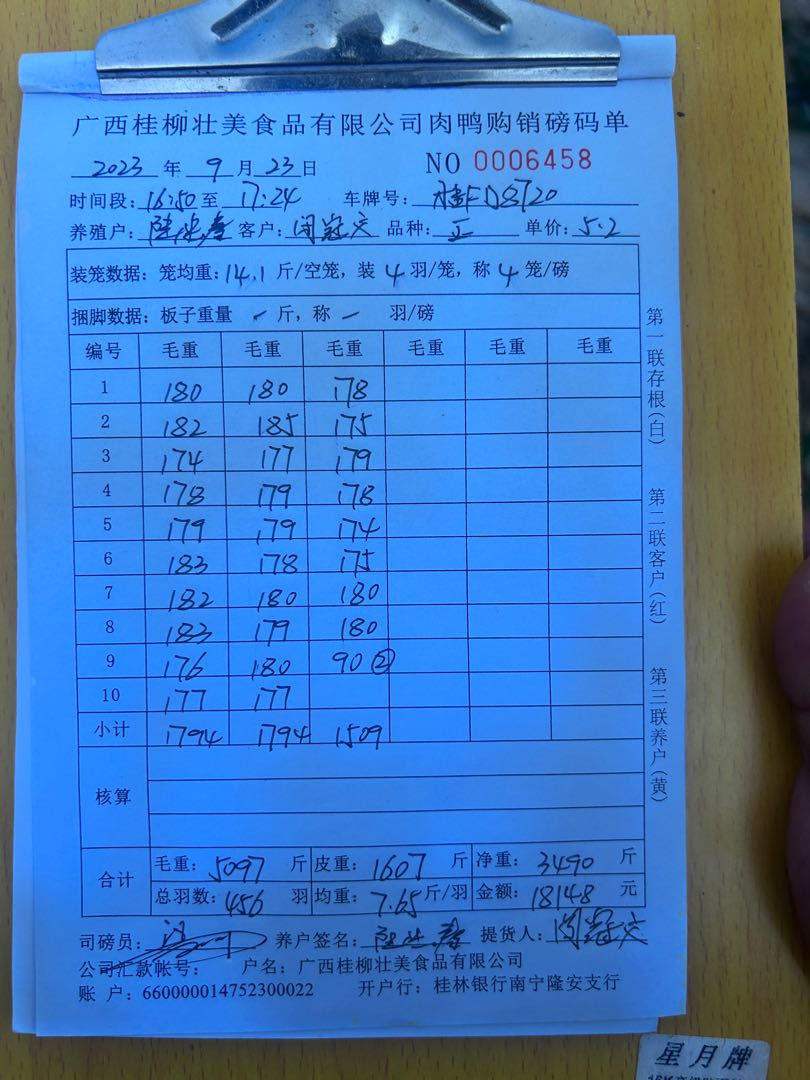 广西桂柳壮美食品有限公司肉鸭购销磅码单
2023 年 9 月 23 日 NO 0006458
时间段: 16:50 至 17:24 车牌号: 桂FD8720
养殖户: 客户: 闭冠文 品种: 正 单价: 5.2
装笼数据: 笼均重: 14.1 斤/空笼, 装 4 羽/笼, 称 4 笼/磅
捆脚数据: 板子重量 — 斤, 称 — 羽/磅
编号 毛重 毛重 毛重 毛重 毛重 毛重
1 180 180 178
2 182 185 175
3 174 177 179
4 178 179 178
5 179 179 174
6 183 178 175
7 182 180 180
8 183 179 180
9 176 180 90 ②
10 177 177
小计 1794 1794 1509
核算
合计 毛重: 5097 斤 皮重: 1607 斤 净重: 3490 斤
总羽数: 456 羽 均重: 7.65 斤/羽 金额: 18148 元
司磅员: 养户签名: 提货人: 闭冠文
公司汇款帐号: 户名: 广西桂柳壮美食品有限公司
账 户: 660000014752300022 开户行: 桂林银行南宁隆安支行
第一联存根(白) 第二联客户(红) 第三联养户(黄)
星月牌